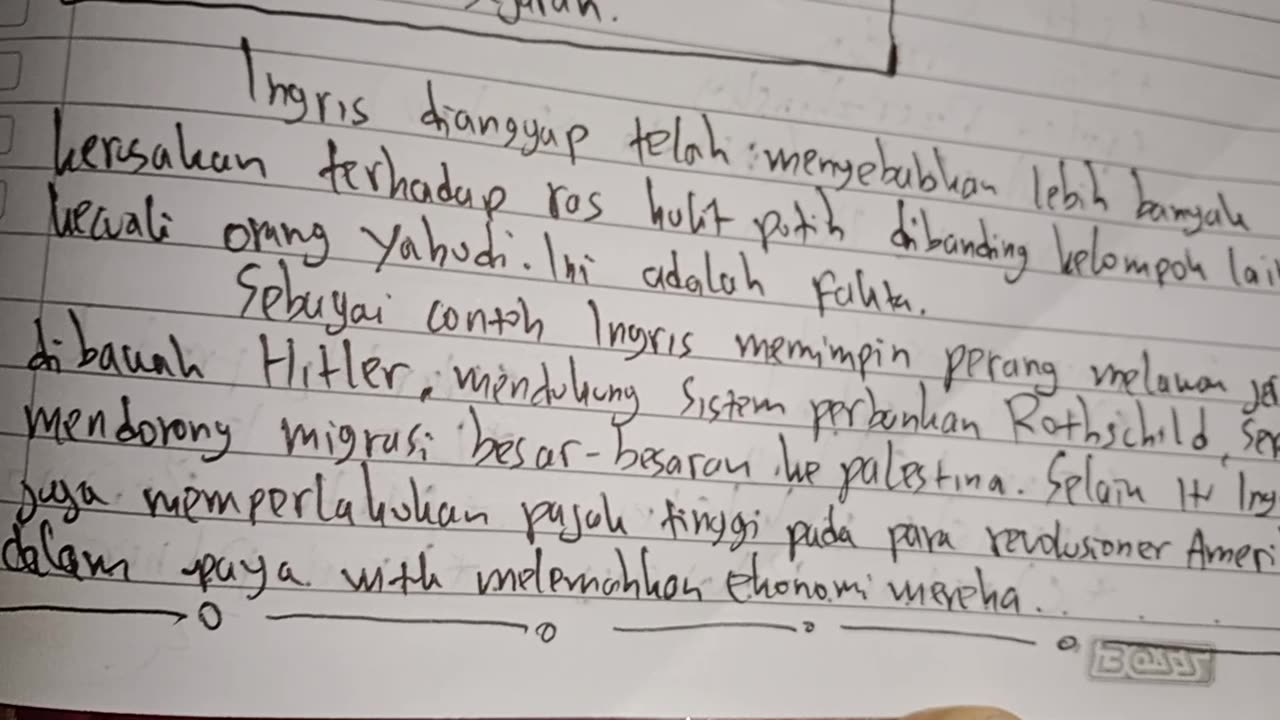 jalan.
Ingris dianggap telah menyebabkan lebih banyak
kerusakan terhadap ras kulit putih dibanding kelompok lai
kecuali orang Yahudi. Ini adalah fakta.
Sebagai contoh Ingris memimpin perang melawan je
dibawah Hitler, mendukung sistem perbankan Rothschild, ser
mendorong migrasi besar-besaran ke palestina. Selain itu Ing
juga memperlakukan pajak tinggi pada para revolusioner Ameri
dalam upaya with melemahkan ekonomi mereka.
Boss